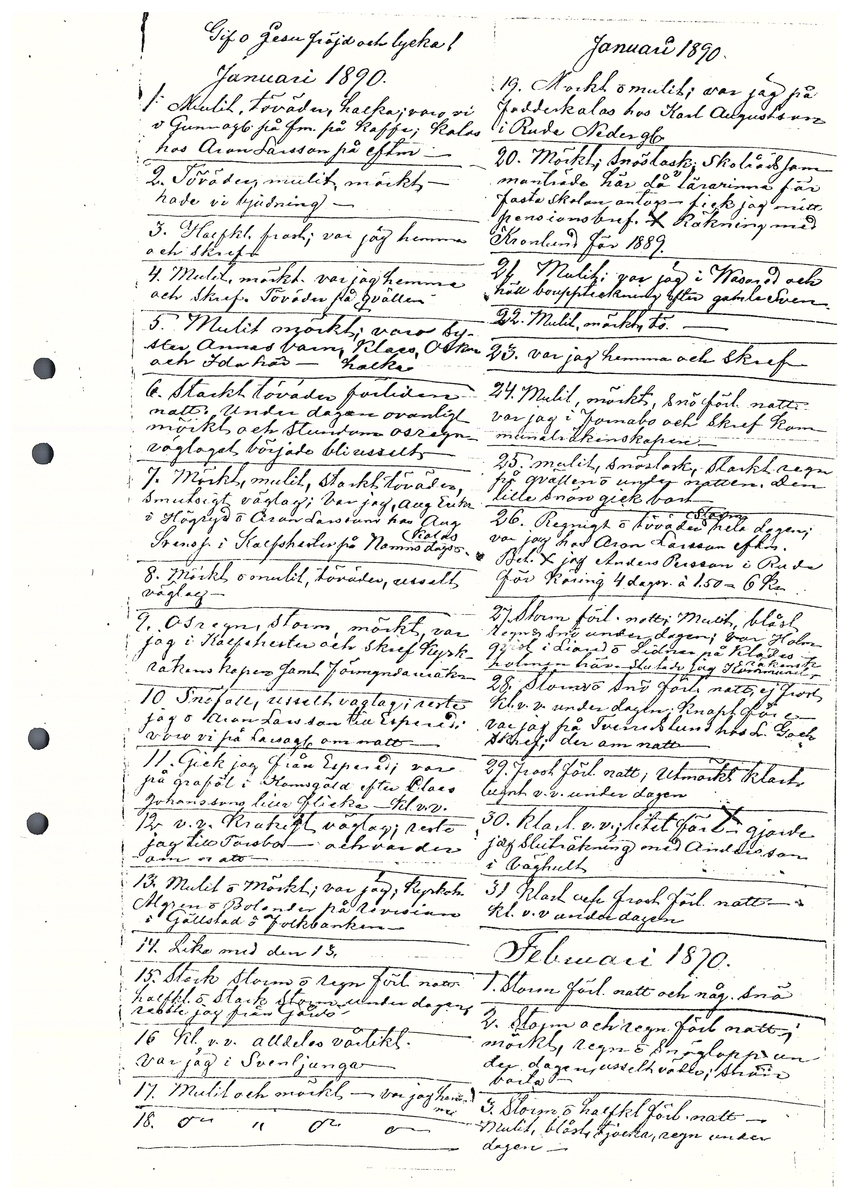 Gif o Jesu fröjd och lycka!
Januari 1890.
1. Mulit, töväder, halka; voro vi
v Gunnagb på fm. på kaffe; kalas
hos Aron Larsson på eftm —
2. Töväder, mulit, mörkt —
hade vi bjudning —
3. Halfkl. frost; var jag hemma
och skref —
4. Mulit, mörkt. var jag hemma
och skref. Töväder på qvällen
5. Mulit mörkt; voro sy-
ster Annas barn, Klaes, Oskar
och Ida här — halka
6. Starkt töväder förliden
natt. Under dagen ovanligt
mörkt och stundom osregn
väglaget började bli uselt
7. Mörkt, mulit, starkt töväder,
smutsigt väglag; var jag, Aug
i Högryd o Aron Larssons hos Aug
Svensp. i Kalfshester på Namnsdags-
kalas
8. Mörkt o mulit, töväder, usselt
väglag —
9. Osregn, storm, mörkt, var
jag i Kalfshester och skref Kyrk
räkenskaper samt Förmyndareräkn
10. Snöfall, usselt väglag; reste
jag o Aron Larsson till Espered;
voro vi på Larsagb. om natt —
11. Gick jag från Espered; var
på graföl i Komsgäld efter Claes
Johanssons lilla flicka — kl. v.v.
12. v.v. Krakigt väglag; reste
jag till Torsbo — och var der
om natt —
13. Mulit o Mörkt; var jag, Kyrkoh.
Algren o Bolander på revision
i Gällstad o Folkbanken —
14. Lika med den 13.
15. Stark Storm o regn förl. natt
halfkl. o Stark Storm under dagen,
reste jag från
16 Kl. v.v. alldeles vårlikt.
var jag i Svenljunga —
17. Mulit och mörkt — var jag hem-
ma
18. o " o o
Januari 1890.
19. Mörkt o mulit; var jag på
Fadderkalas hos Karl Augustsson
i Ruda Nedergb
20. Mörkt; Snöslask; Skolrådssam
manträde här då lärarinna för
fasta skolan antogs — fick jag mitt
pensionsbref. X Räkning med
Kronlund för 1889.
21. Mulit; var jag i Wasared och
höll bouppteckning efter
22. Mulit, mörkt, —
23. var jag hemma och skref
24. Mulit, mörkt, snö förl. natt
var jag i Jernabo och skref kom
munalräkenskaper —
25. mulit, snöslask, starkt regn
på qvällen o under natten. Den
lille snön gick bort
26. Regnigt o töväder Storm hela dagen;
var jag hos Aron Larsson eftm.
Bet. X jag Anders Persson i Ruda
för köring 4 dagar à 1.50 = 6 Kr
27. Storm förl. natt; Mulit, blåst
regn o snö under dagen; var Holm
qvist i o Lidner på Klädes
holmen här — slutade jag Kommunal-
räkensk
28. Storm o Snö förl. natt, ej frost
kl. v.v. under dagen; knapt före
var jag på Tveredslund hos L. G. och
skref; der om natt
29. Frost förl. natt; Utmärkt klart
lugnt v.v. under dagen
30. Klart v.v.; litet förl — X gjorde
jag sluträkning med Andersson
i Väghult
31 Klart och frost förl. natt —
kl. v.v under dagen
Februari 1890.
1. Storm förl. natt och någ. snö
2. Storm och regn förl. natt;
mörkt, regn o snöglopp un
der dagen, usselt väder; snön
borta —
3. Storm o halfkl förl. natt —
Mulit, blåst, tjocka, regn under
dagen —